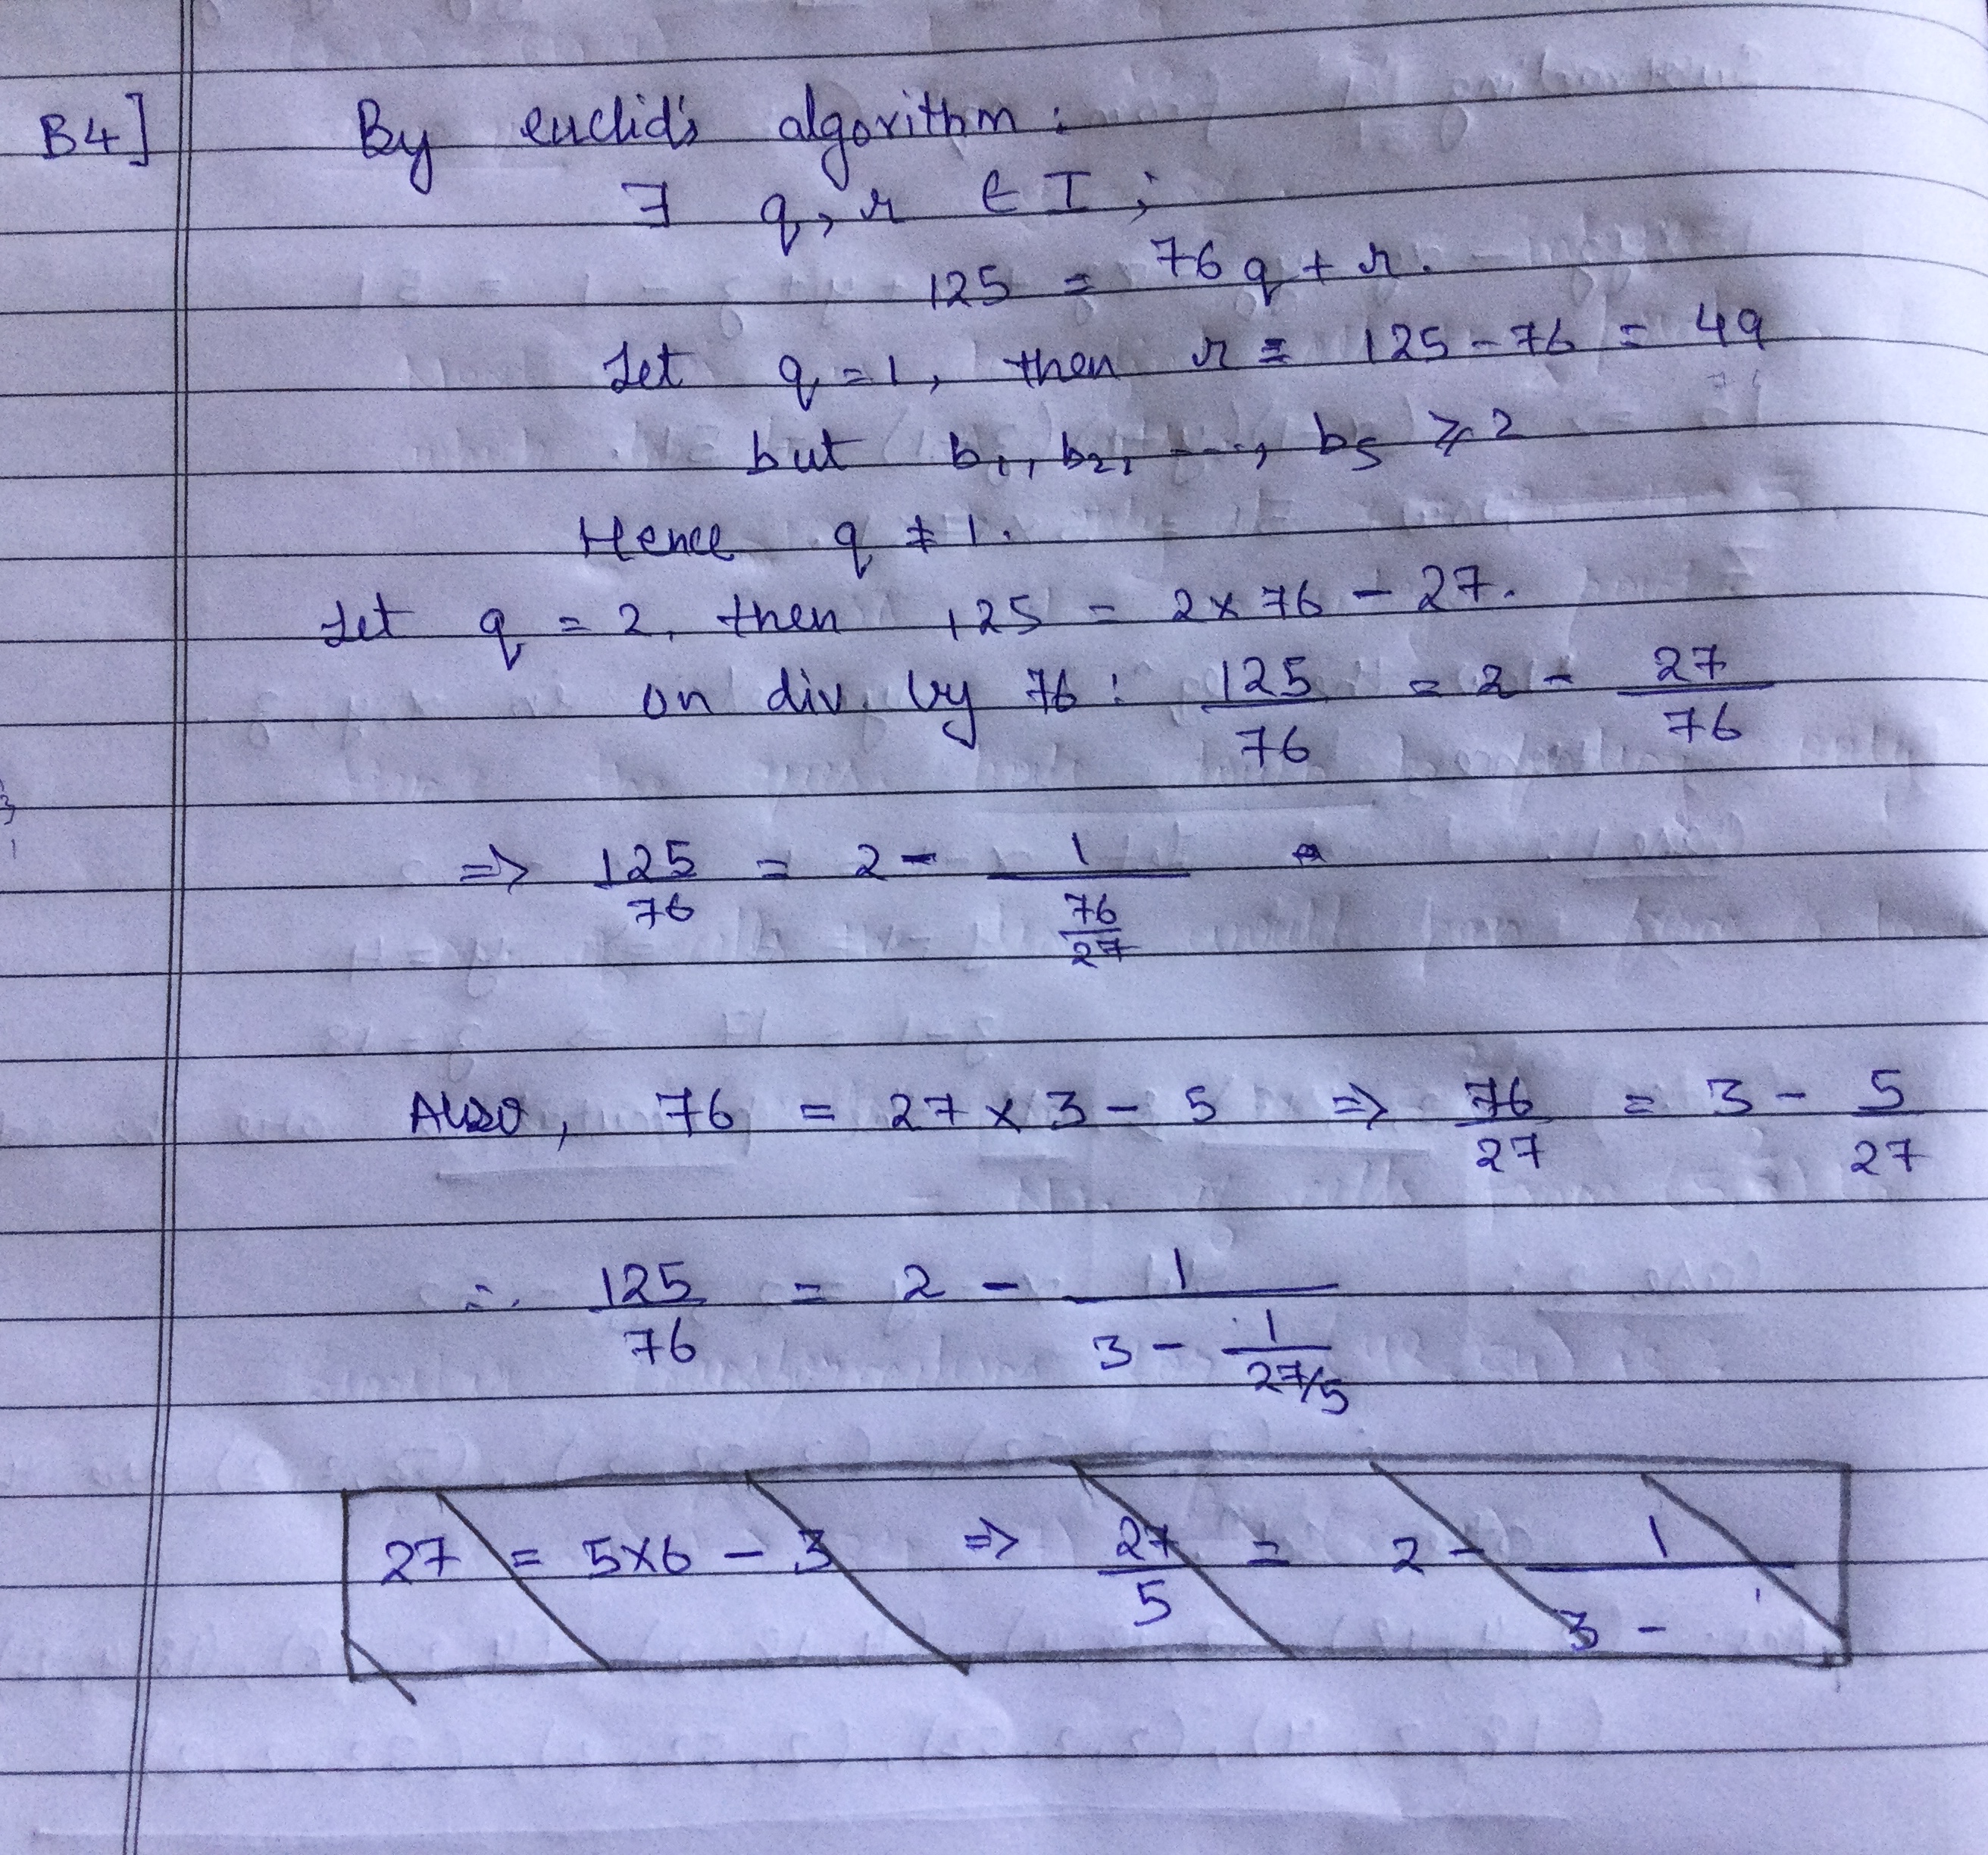 B4] By euclid's algorithm:
∃ q, r ∈ I;
125 = 76q + r.
Let q = 1, then r = 125 - 76 = 49
but b₁, b₂, ..., b₅ ≥ 2
Hence q ≠ 1.
Let q = 2, then 125 = 2 x 76 - 27.
on div. by 76: 125/76 = 2 - 27/76
=> 125/76 = 2 - 1/(76/27)
Also, 76 = 27 x 3 - 5 => 76/27 = 3 - 5/27
∴ 125/76 = 2 - 1/(3 - 1/(27/5))
27 = 5x6 - 3 => 27/5 = 2 - 1/(3 -